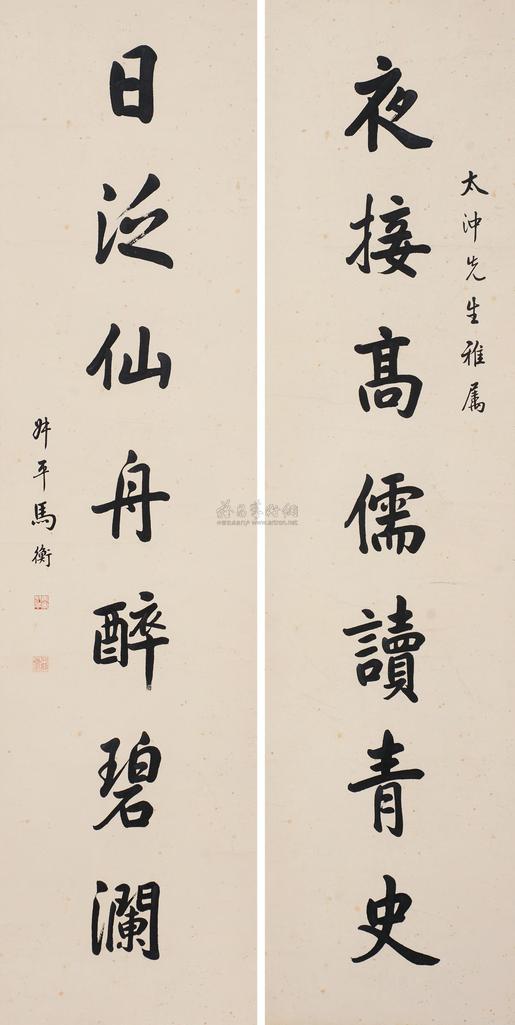 夜接高儒讀青史
太沖先生雅属
日泛仙舟醉碧瀾
叔平馬衡
www.artron.net